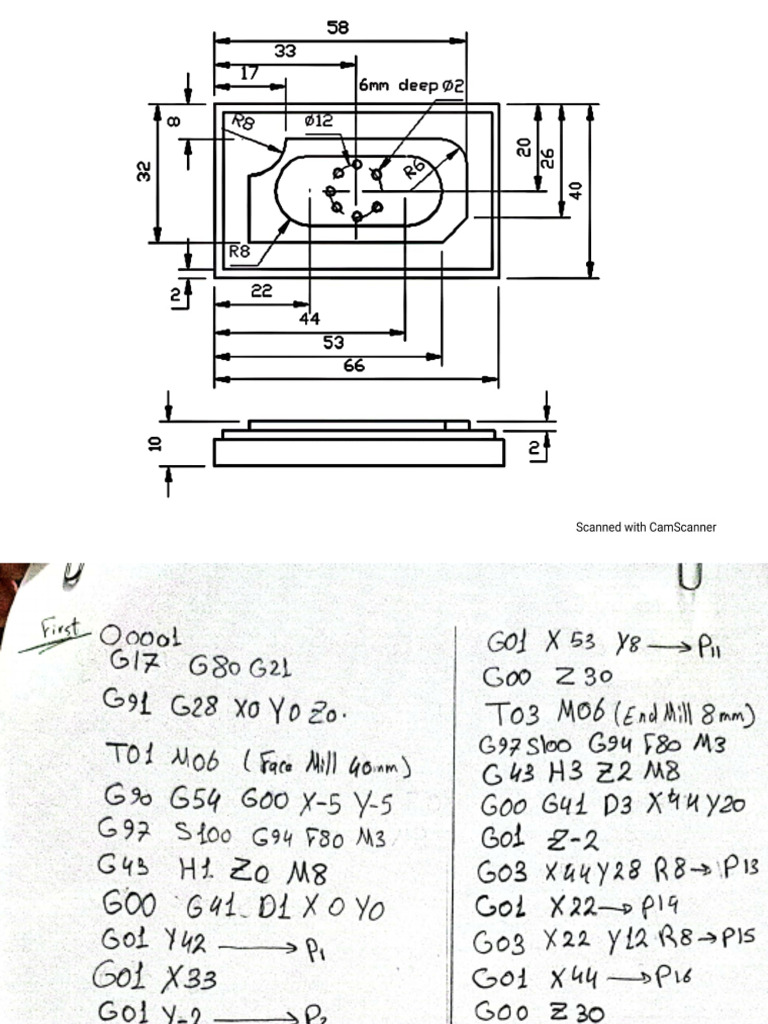 58
33
17
6mm deep Ø2
R8
Ø12
8
R6
20
26
32
40
R8
2
22
44
53
66
10
2
Scanned with CamScanner
First
O0001
G17 G80 G21
G91 G28 X0 Y0 Z0.
T01 M06 (Face Mill 40mm)
G90 G54 G00 X-5 Y-5
G97 S100 G94 F80 M3
G43 H1 Z0 M8
G00 G41 D1 X0 Y0
G01 Y42 → P1
G01 X33
G01 Y-2 → P2
G01 X53 Y8 → P11
G00 Z30
T03 M06 (End Mill 8mm)
G97 S100 G94 F80 M3
G43 H3 Z2 M8
G00 G41 D3 X44 Y20
G01 Z-2
G03 X44 Y28 R8 → P13
G01 X22 → P14
G03 X22 Y12 R8 → P15
G01 X44 → P16
G00 Z30